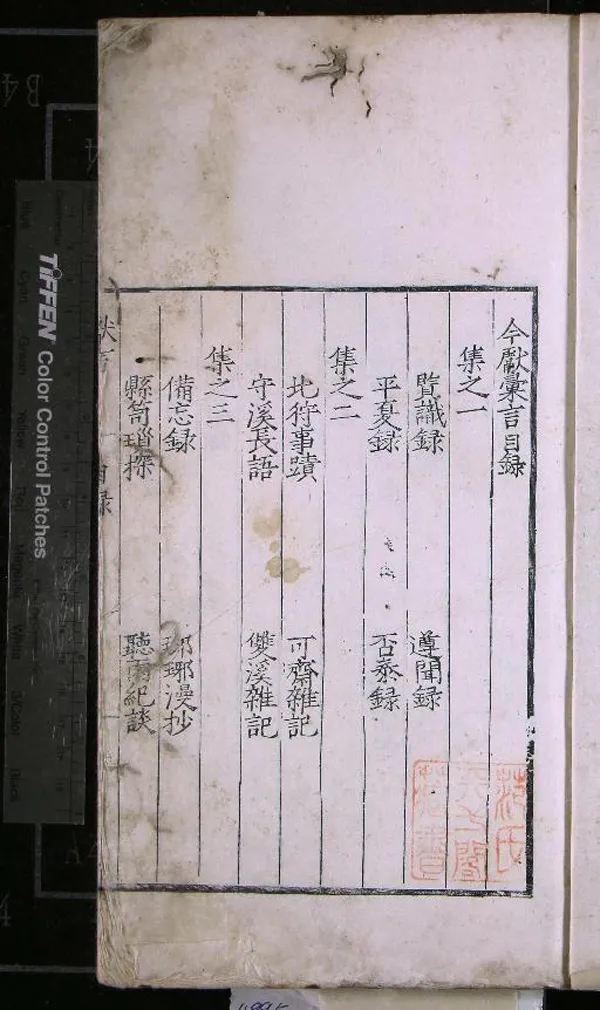 今獻彙言目録
集之一
覧識録 遵聞録
平夏録 否泰録
集之二
北狩事蹟 可齋雜記
守溪長語 雙溪雜記
集之三
備忘録 琅琊漫抄
縣笥瑣探 聽雨紀談
獻言 目録
范氏
天一閣
藏書
TIFFEN Color Control Patches
Blue Cyan Green Yellow Red Magenta White 3/Color Black